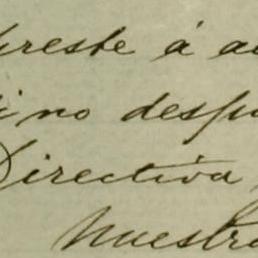 preste á a
no desp
Directiva
nuestr